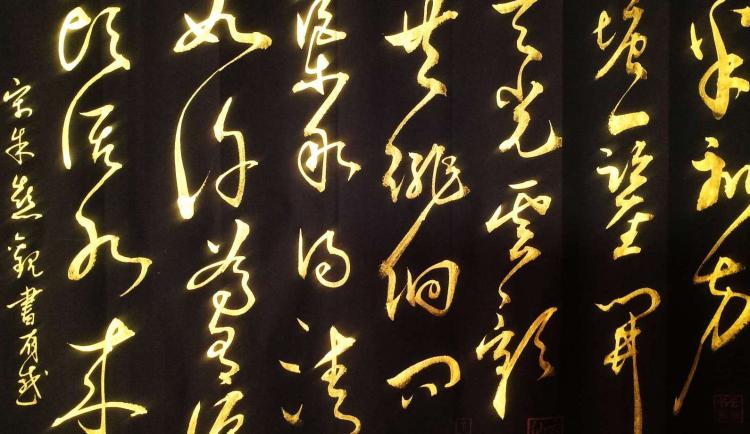 半畝方
塘一鑒開
天光雲影
共徘徊問
渠那得清
如許為有源
頭活水來
宋朱熹觀書有感